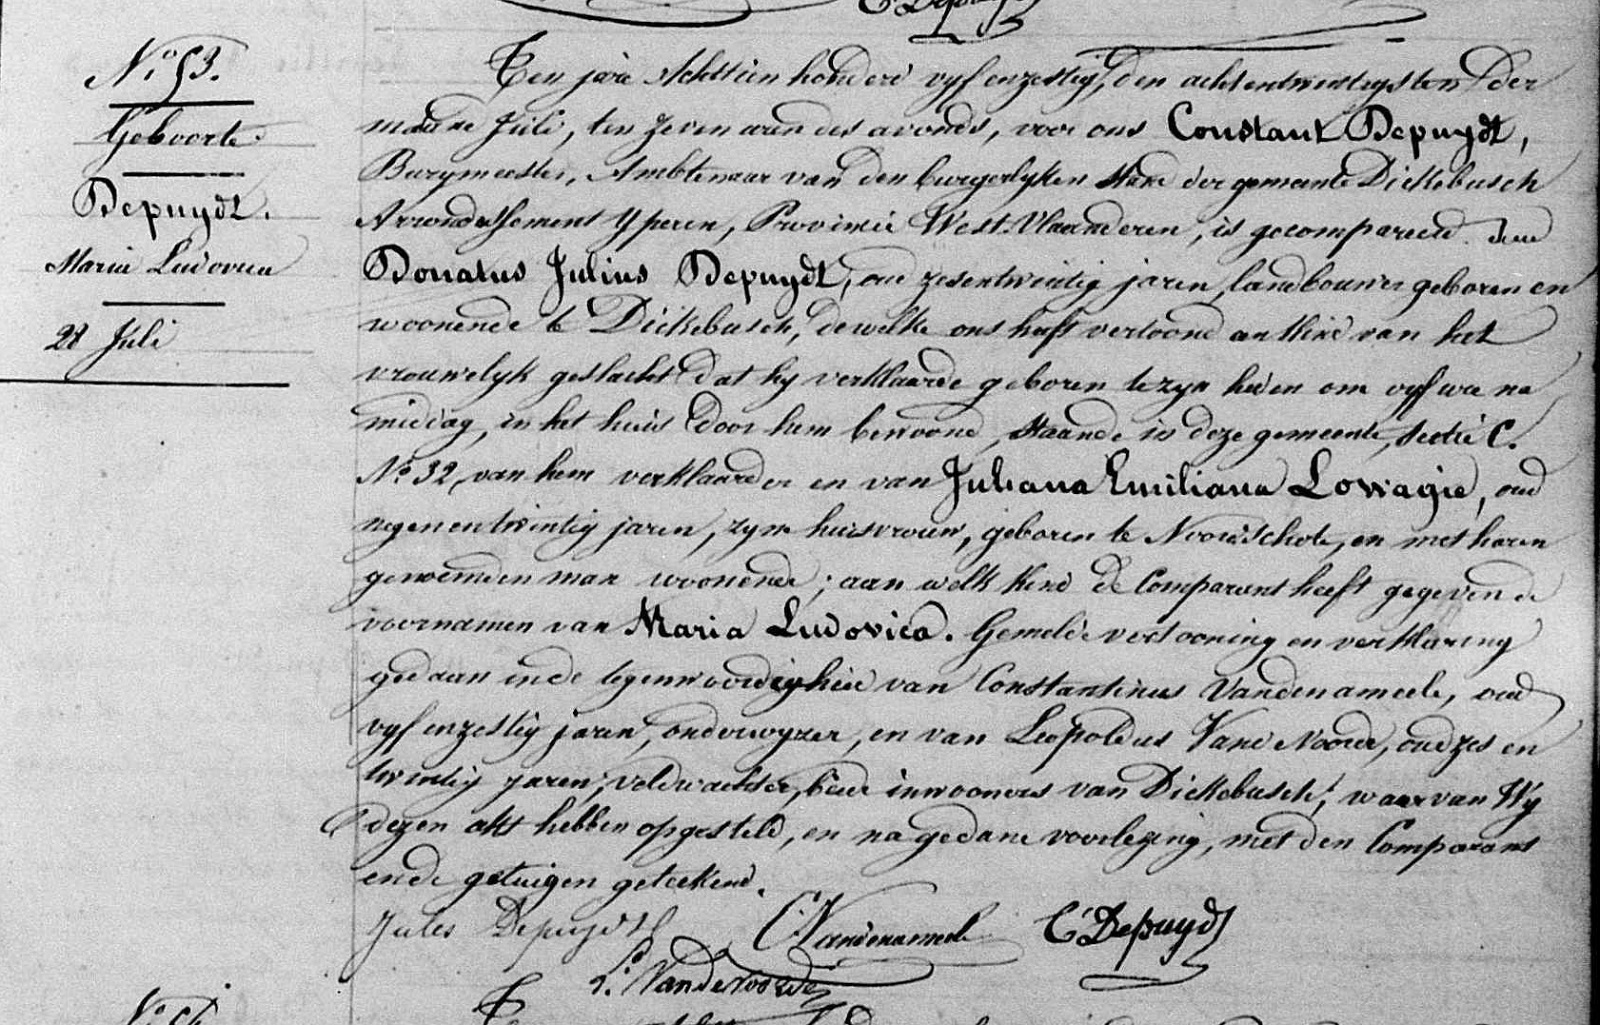 C. Depuydt
N.º 53.
Geboorte
Depuydt.
Maria Ludovica
28 Juli
Ten jare Achttien honderd vyf en zestig, den achtentwintigsten der
maand Juli, ten zeven uren des avonds, voor ons Constant Depuydt,
Burgmeester, Ambtenaar van den burgerlyken staat der gemeente Dickebusch
Arrondissement Yperen, Provincie West-Vlaanderen, is gecompareerd
Donatus Julius Depuydt, oud zesentwintig jaren, landbouwer geboren en
woonende te Dickebusch, dewelke ons heeft vertoond een kind van het
vrouwelyk geslacht dat hy verklaarde geboren te zyn heden om vyf ure na
middag, in het huis door hem bewoond, staande in deze gemeente, sectie C.
N.º 32, van hem verklaarder en van Juliana Emiliana Lowagie, oud
negenentwintig jaren, zyne huisvrouw, geboren te Noordschote, en met haren
genoemden man woonende; aan welk kind de Comparant heeft gegeven de
voornamen van Maria Ludovica. Gemelde vertooning en verklaring
gedaan in de tegenwoordigheid van Constantinus Vandenameele, oud
vyf en zestig jaren, onderwyzer, en van Leopoldus Vande Noorde, oud zes en
twintig jaren, veldwachter, beide inwooners van Dickebusch; waarvan Wy
dezen akt hebben opgesteld, en na gedane voorlezing, met den Comparant
en de getuigen geteekend.
Jules Depuydt C. Vandenameele C. Depuydt
L. Vande Noorde